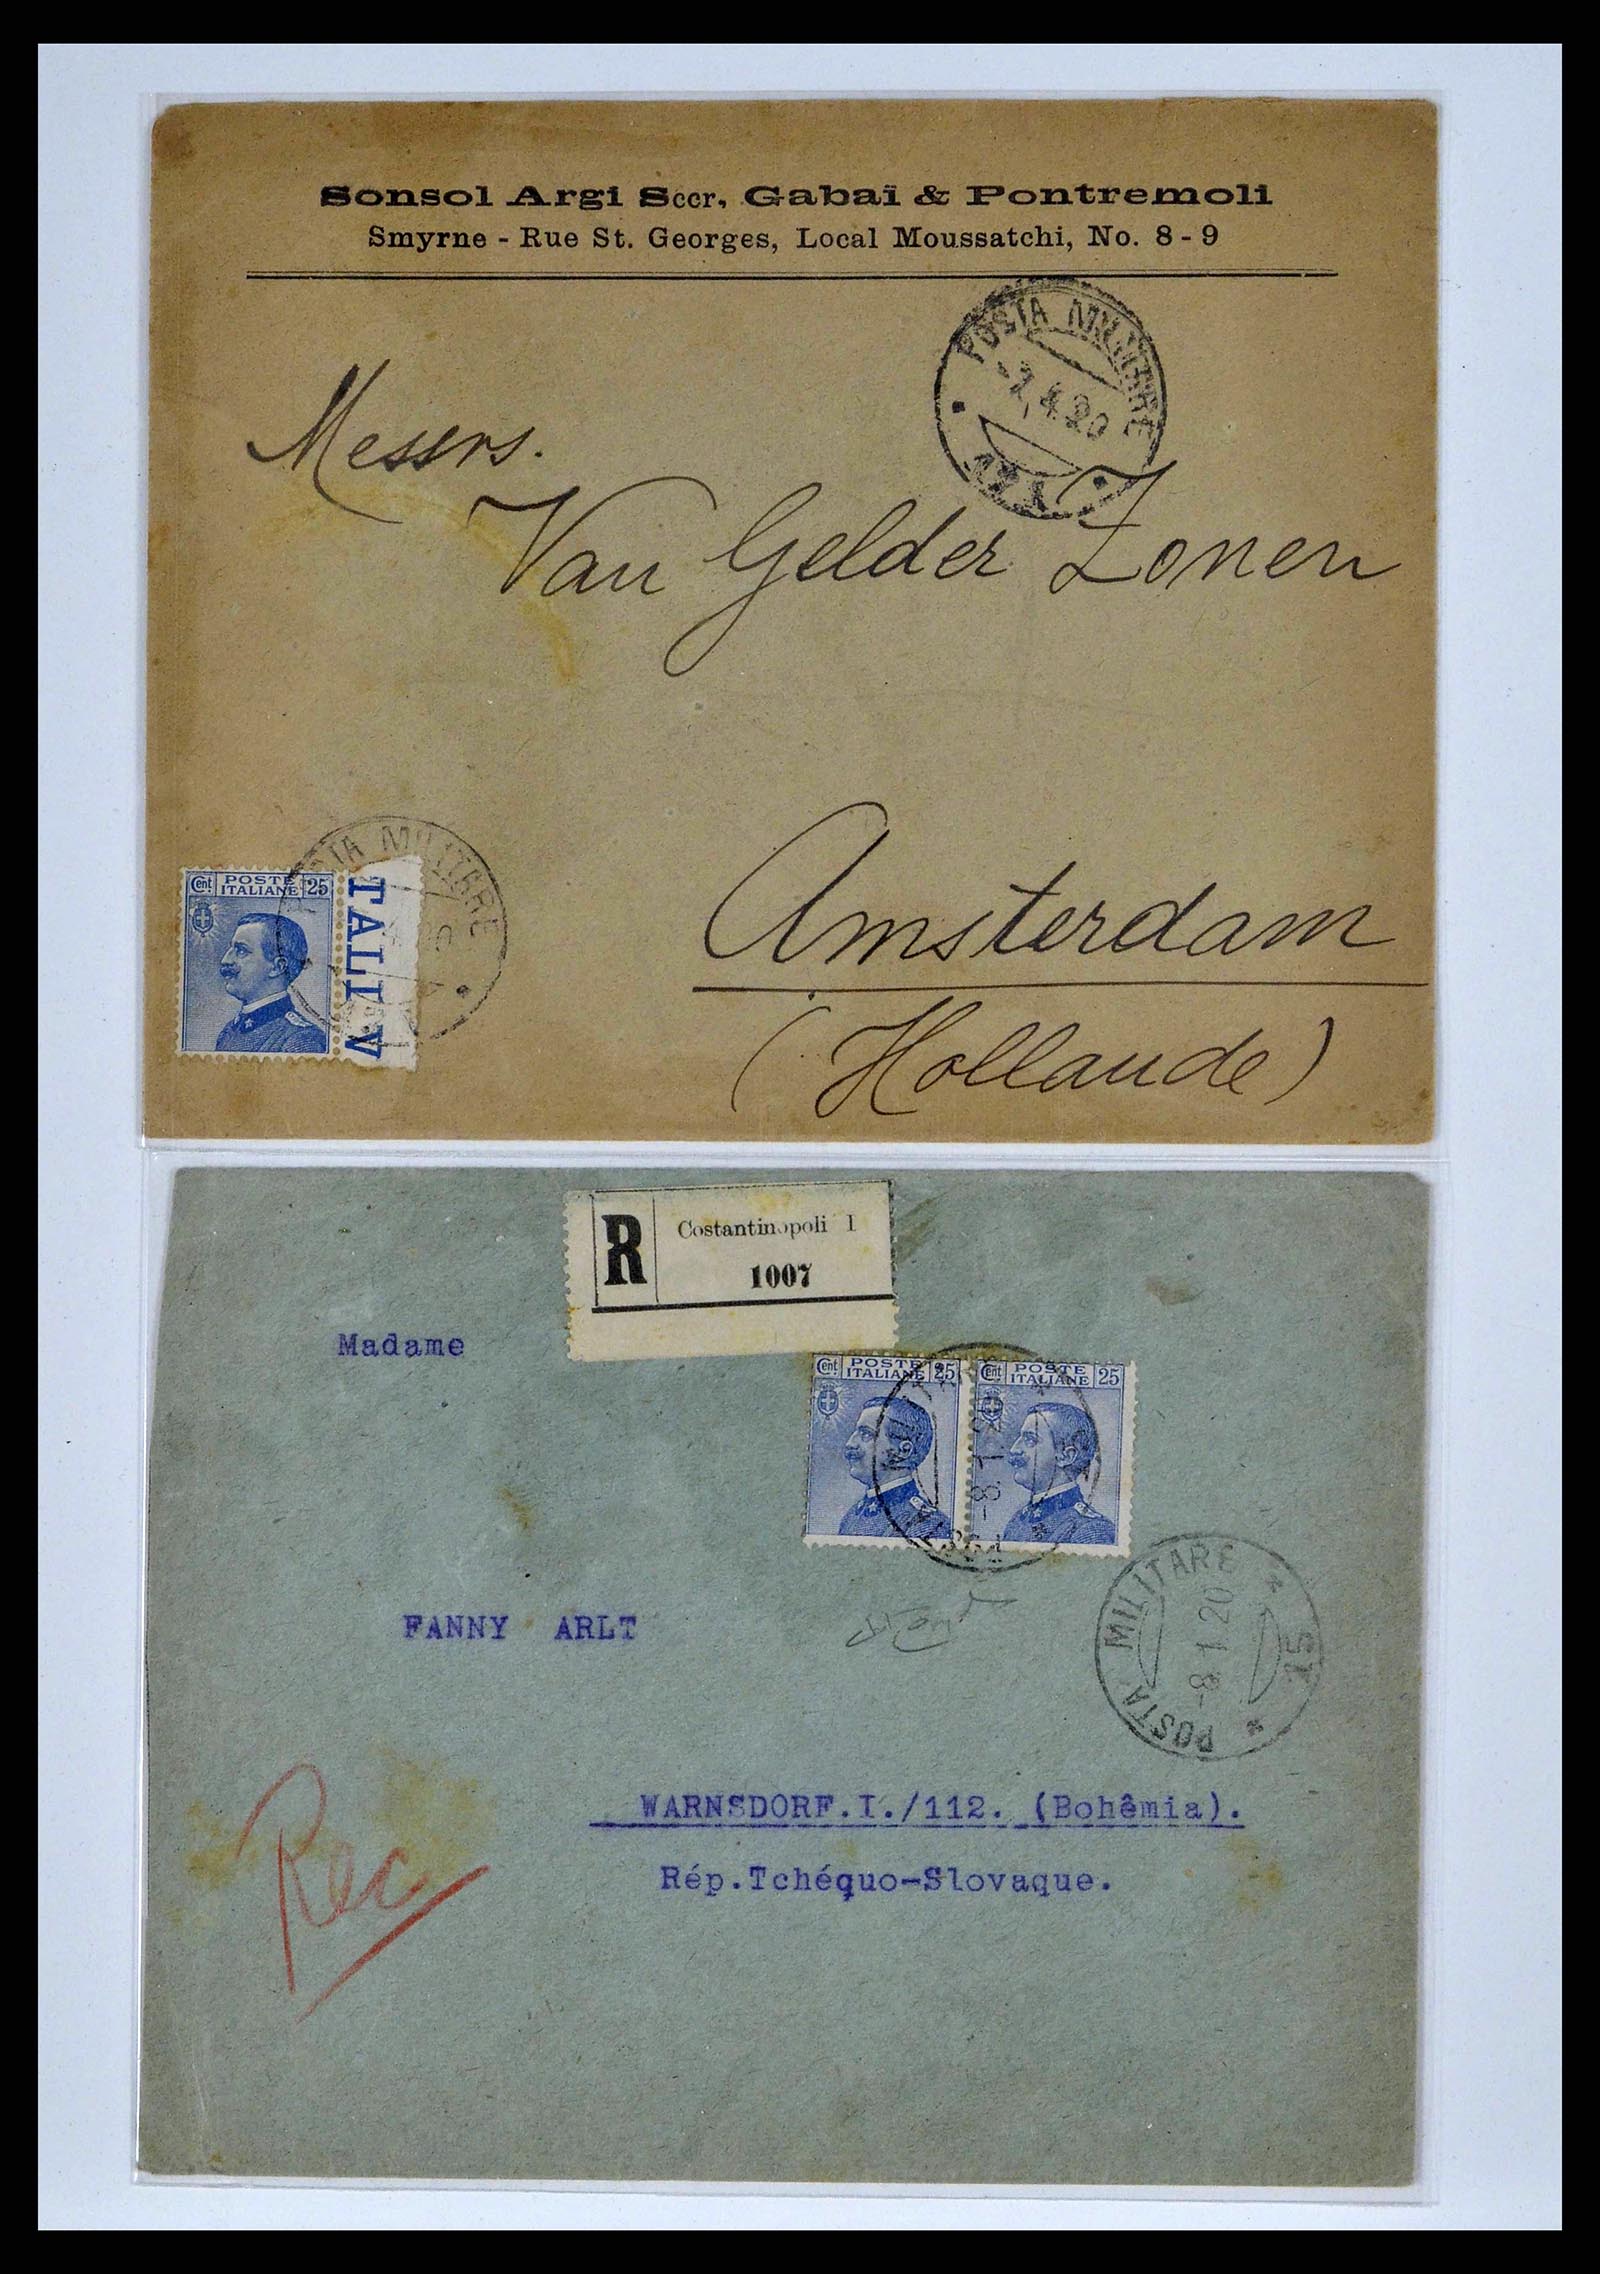 Sonsol Argi Sccr, Gabaï & Pontremoli
Smyrne - Rue St. Georges, Local Moussatchi, No. 8 - 9
POSTA MILITARE
Messrs.
Van Gelder Zonen
Amsterdam
(Hollande)
POSTA MILITARE
Cent POSTE ITALIANE 25
TALI
R
Costantinopoli I
1007
Madame
Cent POSTE ITALIANE 25
Cent POSTE ITALIANE 25
POSTA MILITARE
-8.1.20
15
FANNY ARLT
POSTA MILITARE
-8.1.20
15
WARNSDORF.I./112. (Bohêmia).
Rép.Tchéquo-Slovaque.
Rec